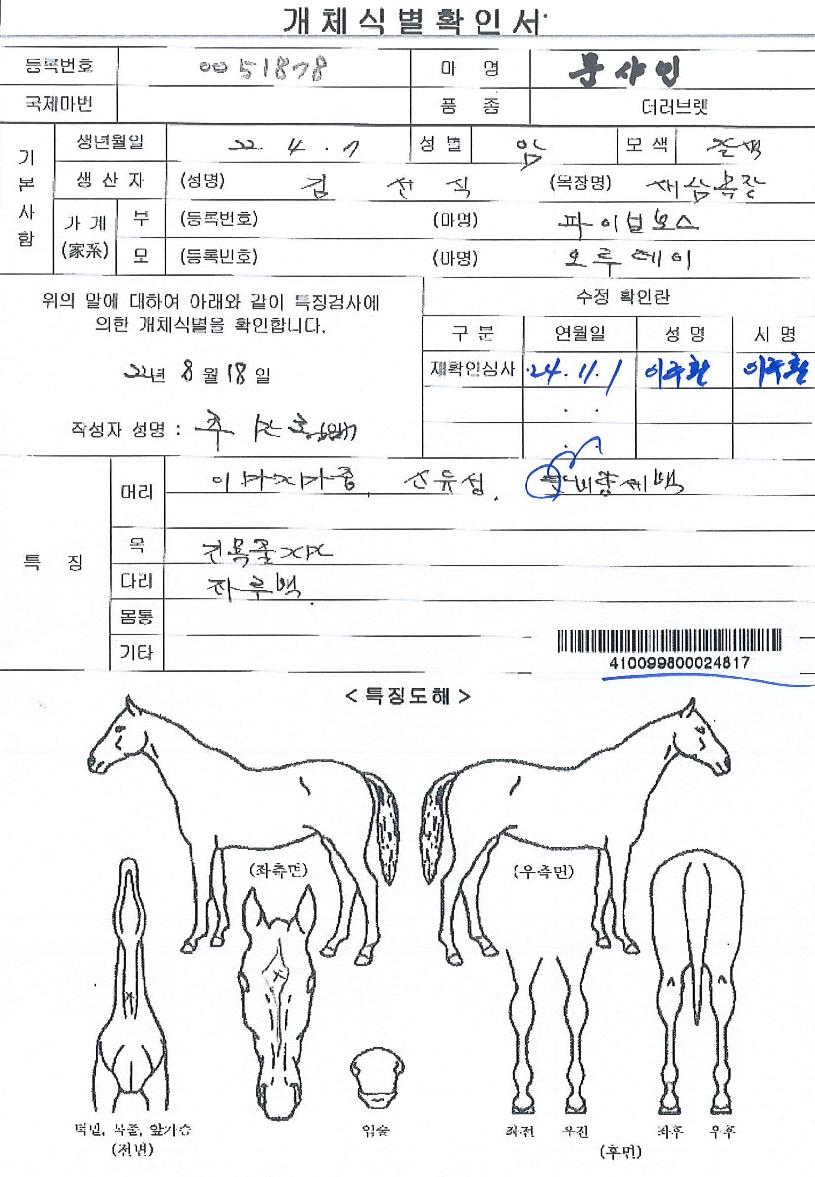 개체식별확인서
등록번호 0051878 마 명 문샤인
국제마번 품 종 더러브렛
기본사항
생년월일 22. 4. 7 성별 암 모색
생 산 자 (성명) 김 선 식 (목장명) 목장
가 계 (家系) 부 (등록번호) (마명) 파이널보스
모 (등록번호) (마명) 오루데이
위의 말에 대하여 아래와 같이 특징검사에
의한 개체식별을 확인합니다.
22년 8월 18일
작성자 성명 :
수정 확인란
구 분 연월일 성 명 서 명
재확인심사 24. 11. 1
특 징
머리 이마지가중, 산유성,
목
다리 좌후백
몸통
기타
410099800024817
< 특징도해 >
(좌측면) (우측면)
턱밑, 목줄, 앞가슴 입술 좌전 우전 좌후 우후
(전면) (후면)